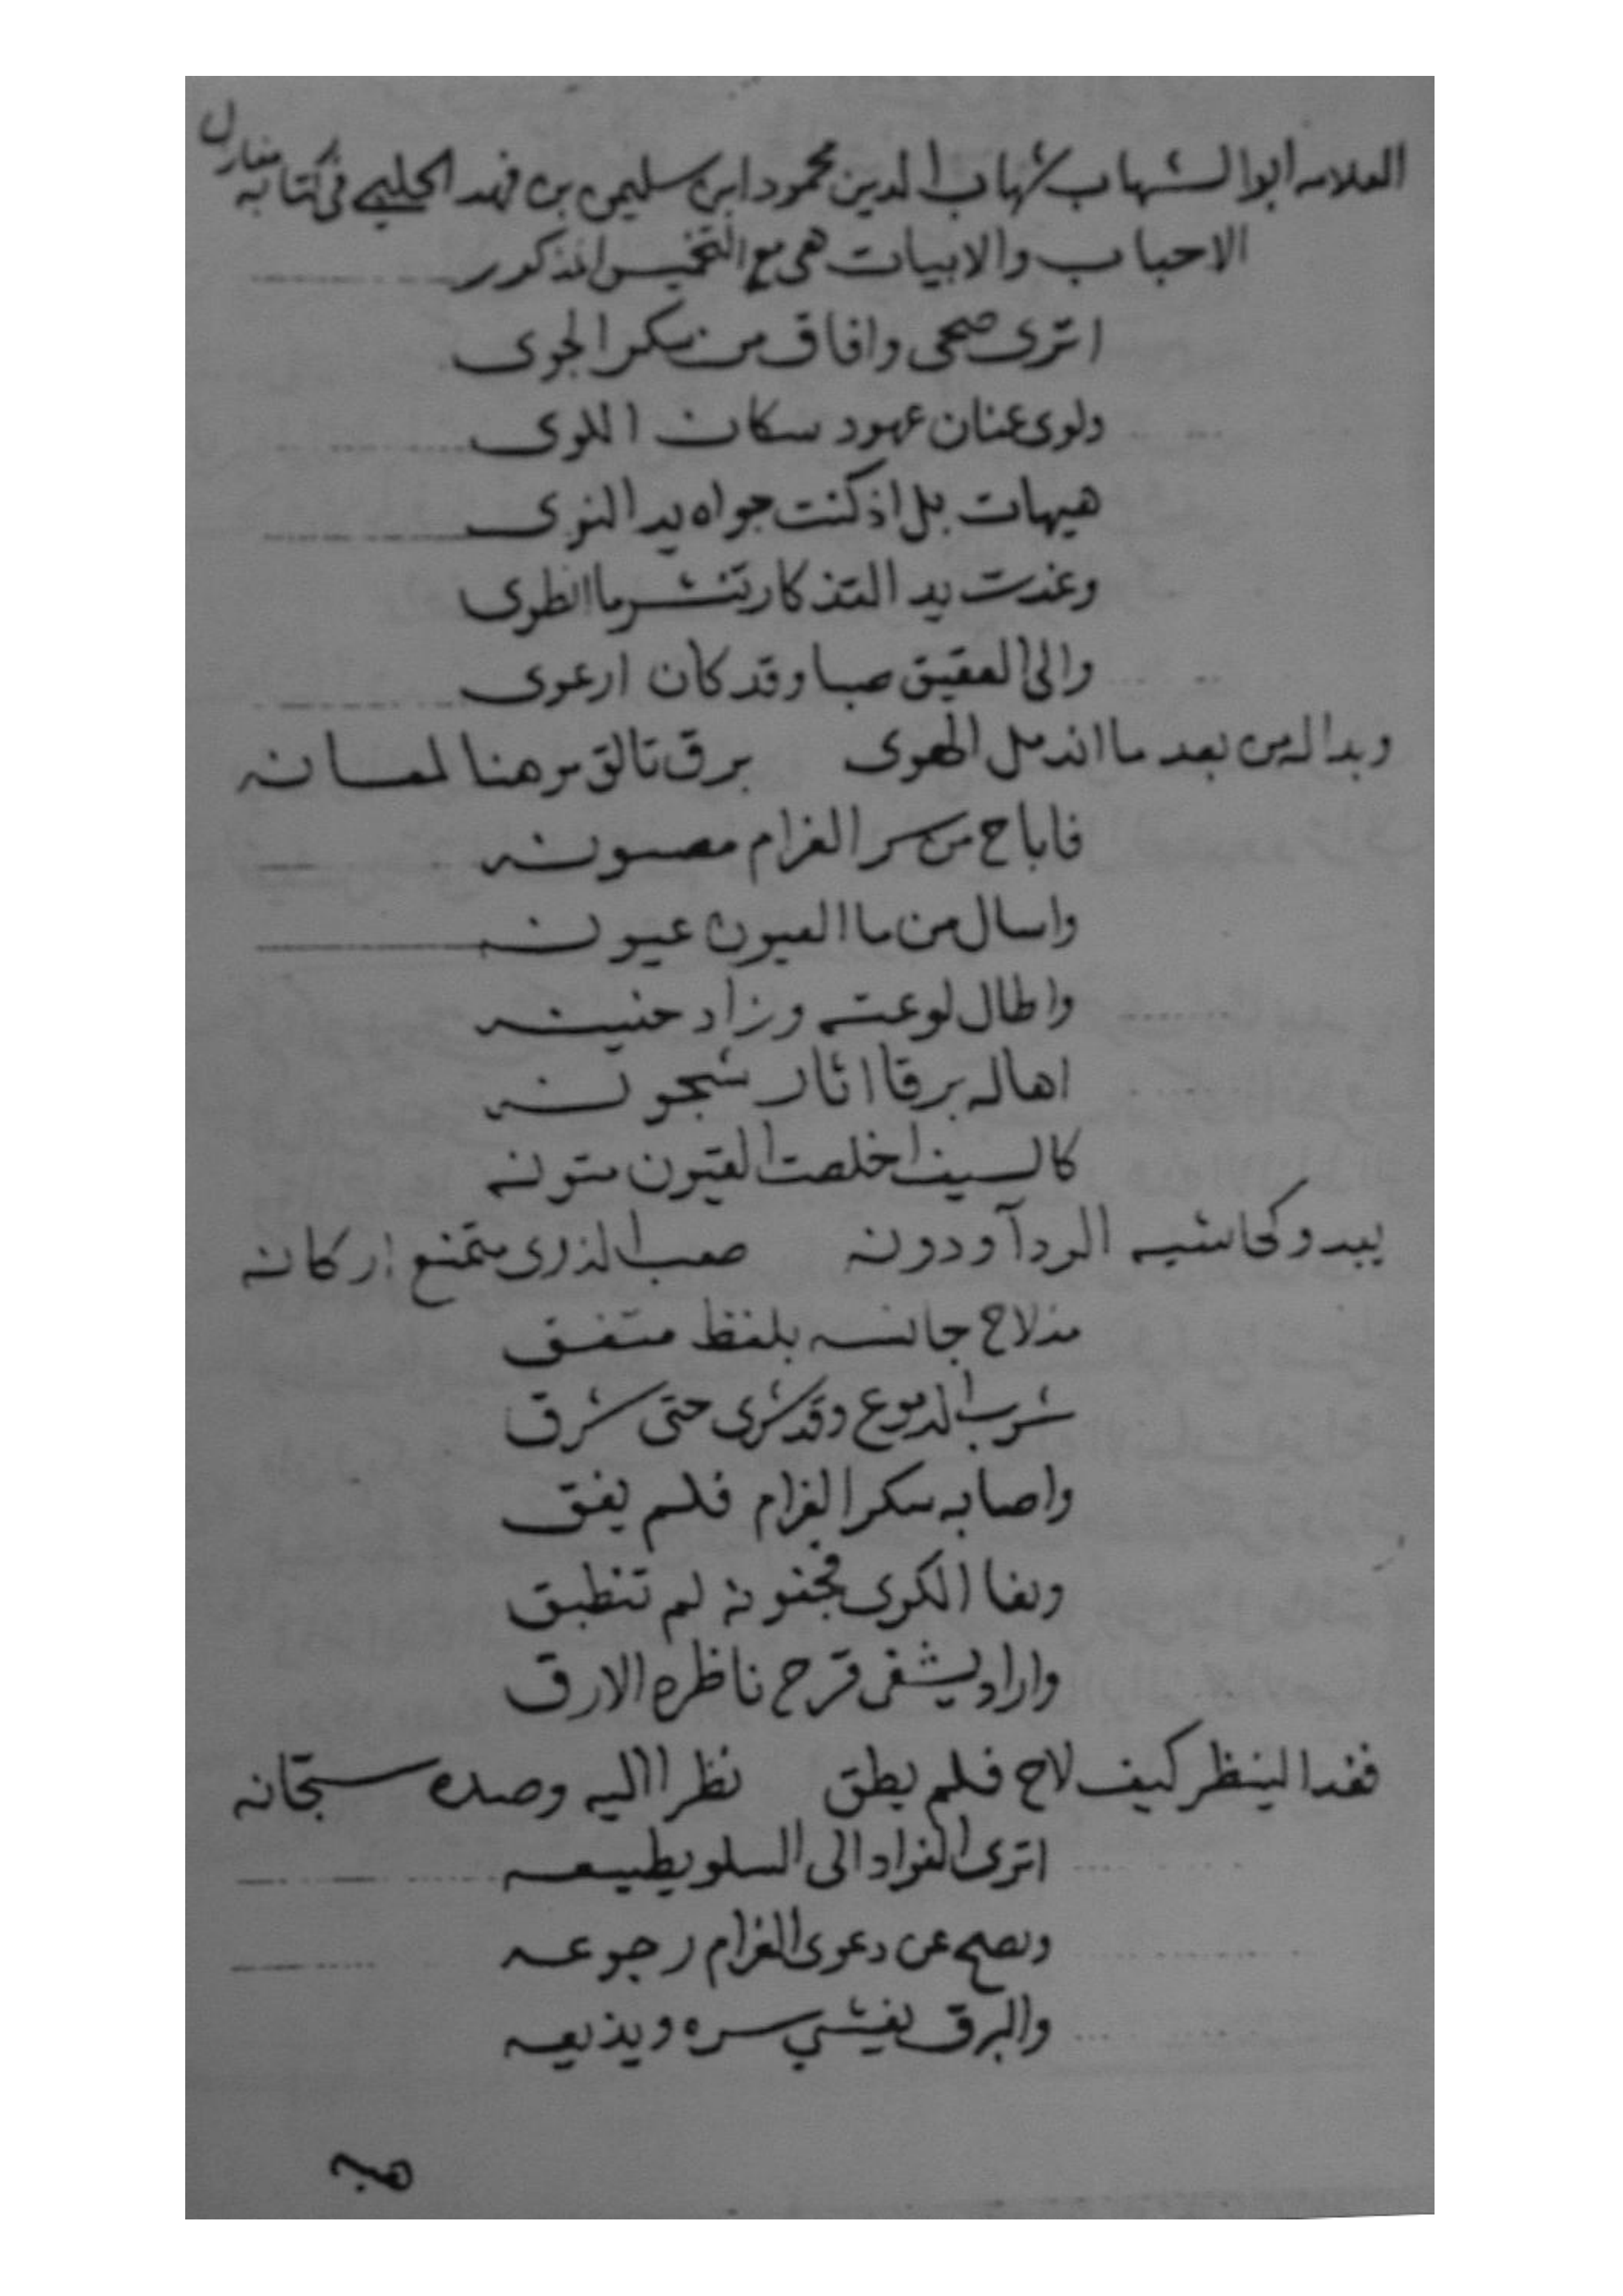 العلامه ابوالشهاب شهاب الدين محمود ابن سليمن بن فهد الحلبي في كتابه منازل
الاحباب والابيات هى مع التخميس المذكور
اترى صحى وافاق من سكر الجوى
ولوى عنان عهود سكان اللوى
هيهات بل اذكت جواه يد النوى
وغدت يد التذكار تنشر ما انطوى
والى العقيق صبا وقد كان ارعوى
وبدا له من بعد ما اندمل الهوى برق تالق موهنا لمعانه
فاباح من سر الغرام مصونه
واسال من ما العيون عيونه
واطال لوعته وزاد حنينه
اهاله برقا اثار شجونه
كالسيف اخلصت القيون متونه
يبدو كحاشيه الردآ ودونه صعب الذرى متمنع اركانه
مذلاح جانسه بلفظ متفق
شرب الدموع وقد شرى حتى شرق
واصابه سكر الغرام فلم يفق
ونفا الكرى فجفونه لم تنطبق
واراد يشفى قرح ناظره الارق
فغدا لينظر كيف لاح فلم يطق نظرا اليه وصده سجانه
اترى الفواد الى السلو يطيعه
ويصح عن دعوى الغرام رجوعه
والبرق يفشي سره ويذيعه